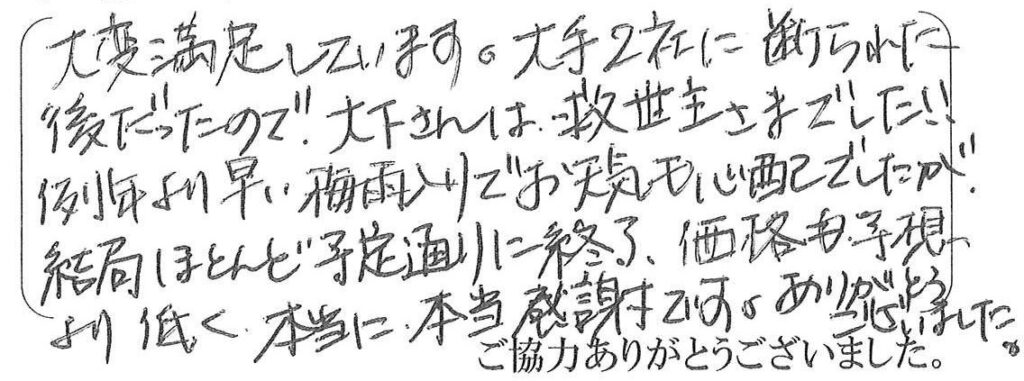 大変満足しています。大手2社に断られた
後だったので、大下さんは、救世主さまでした!!
例年より早い梅雨入りでお天気も心配でしたが、
結局ほとんど予定通りに終了、価格も予想
より低く、本当に、本当感謝です。ありがとう
ございました。
ご協力ありがとうございました。